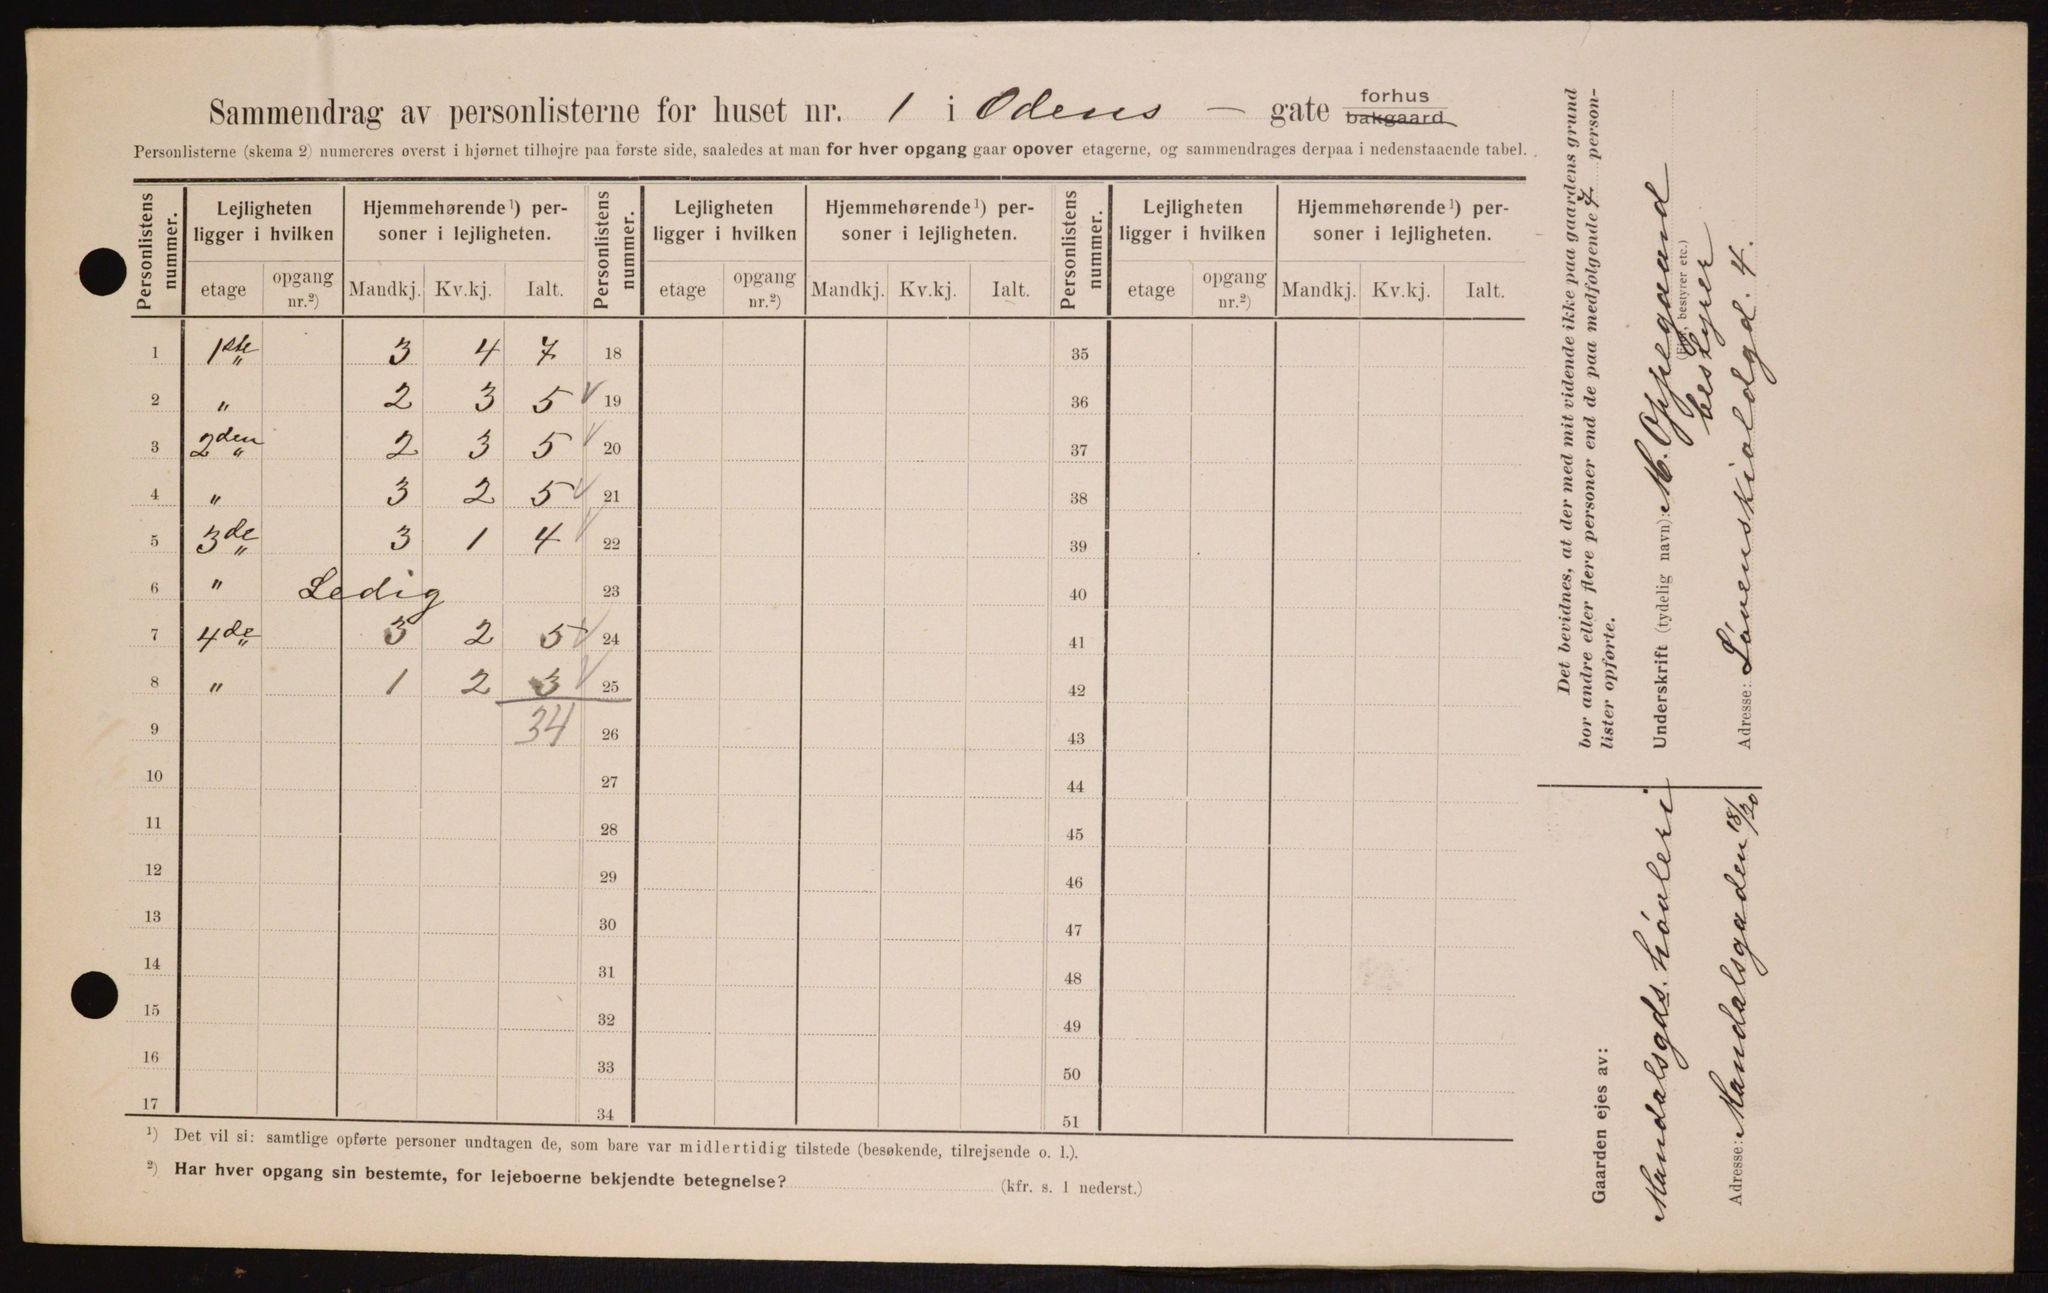 Sammendrag av personlisterne for huset nr. 1 i Odens — gate forhus bakgaard
Personlisterne (skema 2) numereres øverst i hjørnet tilhøjre paa første side, saaledes at man for hver opgang gaar opover etagerne, og sammendrages derpaa i nedenstaaende tabel.
Personlistens nummer. Lejligheten ligger i hvilken Hjemmehørende ¹) personer i lejligheten. Personlistens nummer. Lejligheten ligger i hvilken Hjemmehørende ¹) personer i lejligheten. Personlistens nummer. Lejligheten ligger i hvilken Hjemmehørende ¹) personer i lejligheten.
etage opgang nr.²) Mandkj. Kv.kj. Ialt. etage opgang nr.²) Mandkj. Kv.kj. Ialt. etage opgang nr.²) Mandkj. Kv.kj. Ialt.
1 1ste 3 4 7 18 35
2 " 2 3 5 √ 19 36
3 2den 2 3 5 √ 20 37
4 " 3 2 5 √ 21 38
5 3de 3 1 4 √ 22 39
6 " Ledig 23 40
7 4de 3 2 5 √ 24 41
8 " 1 2 3 √ 25 42
9 34 26 43
10 27 44
11 28 45
12 29 46
13 30 47
14 31 48
15 32 49
16 33 50
17 34 51
¹) Det vil si: samtlige opførte personer undtagen de, som bare var midlertidig tilstede (besøkende, tilrejsende o. l.).
²) Har hver opgang sin bestemte, for lejeboerne bekjendte betegnelse? (kfr. s. 1 nederst.)
Det bevidnes, at der med mit vidende ikke paa gaardens grund
bor andre eller flere personer end de paa medfølgende 7 person-
lister opførte.
Underskrift (tydelig navn): M. Oppegaard
(Eier, bestyrer etc.)
bestyrer
Adresse: Lövenskioldgd. 4.
Gaarden ejes av:
Mandalsgds. hövleri
Adresse: Mandalsgaden 18/20